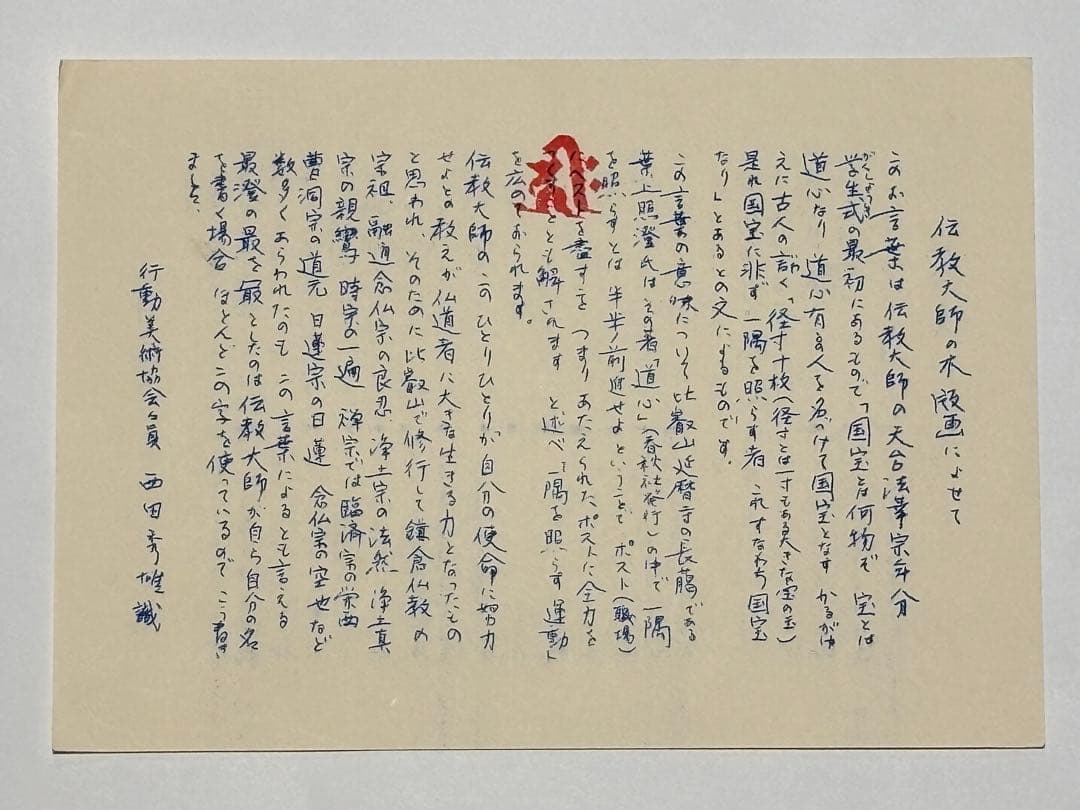 伝教大師の木版画によせて
このお言葉は伝教大師の天台法華宗年分
学生式の最初にあるもので「国宝とは何物ぞ 宝とは
がくしょうしき
道心なり 道心有る人を名づけて国宝となす かるがゆ
えに古人の言く「径寸十枚(径寸とは一寸もある大きな宝の玉)
是れ国宝に非ず 一隅を照らす者 これすなわち国宝
なり」とあるとの文によるものです。
この言葉の意味について比叡山延暦寺の長﨟である
葉上照澄氏はその著「道心」(春秋社発行)の中で 一隅
を照らすとは半半ノ前進せよということで ポスト(職場)
にベストを尽すこと つまり あたえられたポストに全力を
ことも解されます と述べ 一隅を照らす運動
を広めておられます。
伝教大師のこのひとりひとりが自分の使命に努力
せよとの教えが仏道者に大きな生きる力となったもの
と思われ、そのために比叡山で修行して鎌倉仏教の
宗祖、融通念仏宗の良忍 浄土宗の法然 浄土真
宗の親鸞 時宗の一遍 禅宗では臨済宗の栄西
曹洞宗の道元 日蓮宗の日蓮 念仏宗の空也など
数多くあらわれたのも この言葉によるとも言える
最澄の最を 㝡としたのは伝教大師が自ら自分の名
を書く場合 ほとんどこの字を使っているので こう書き
ました、
行動美術協会々員 西田 雄 識